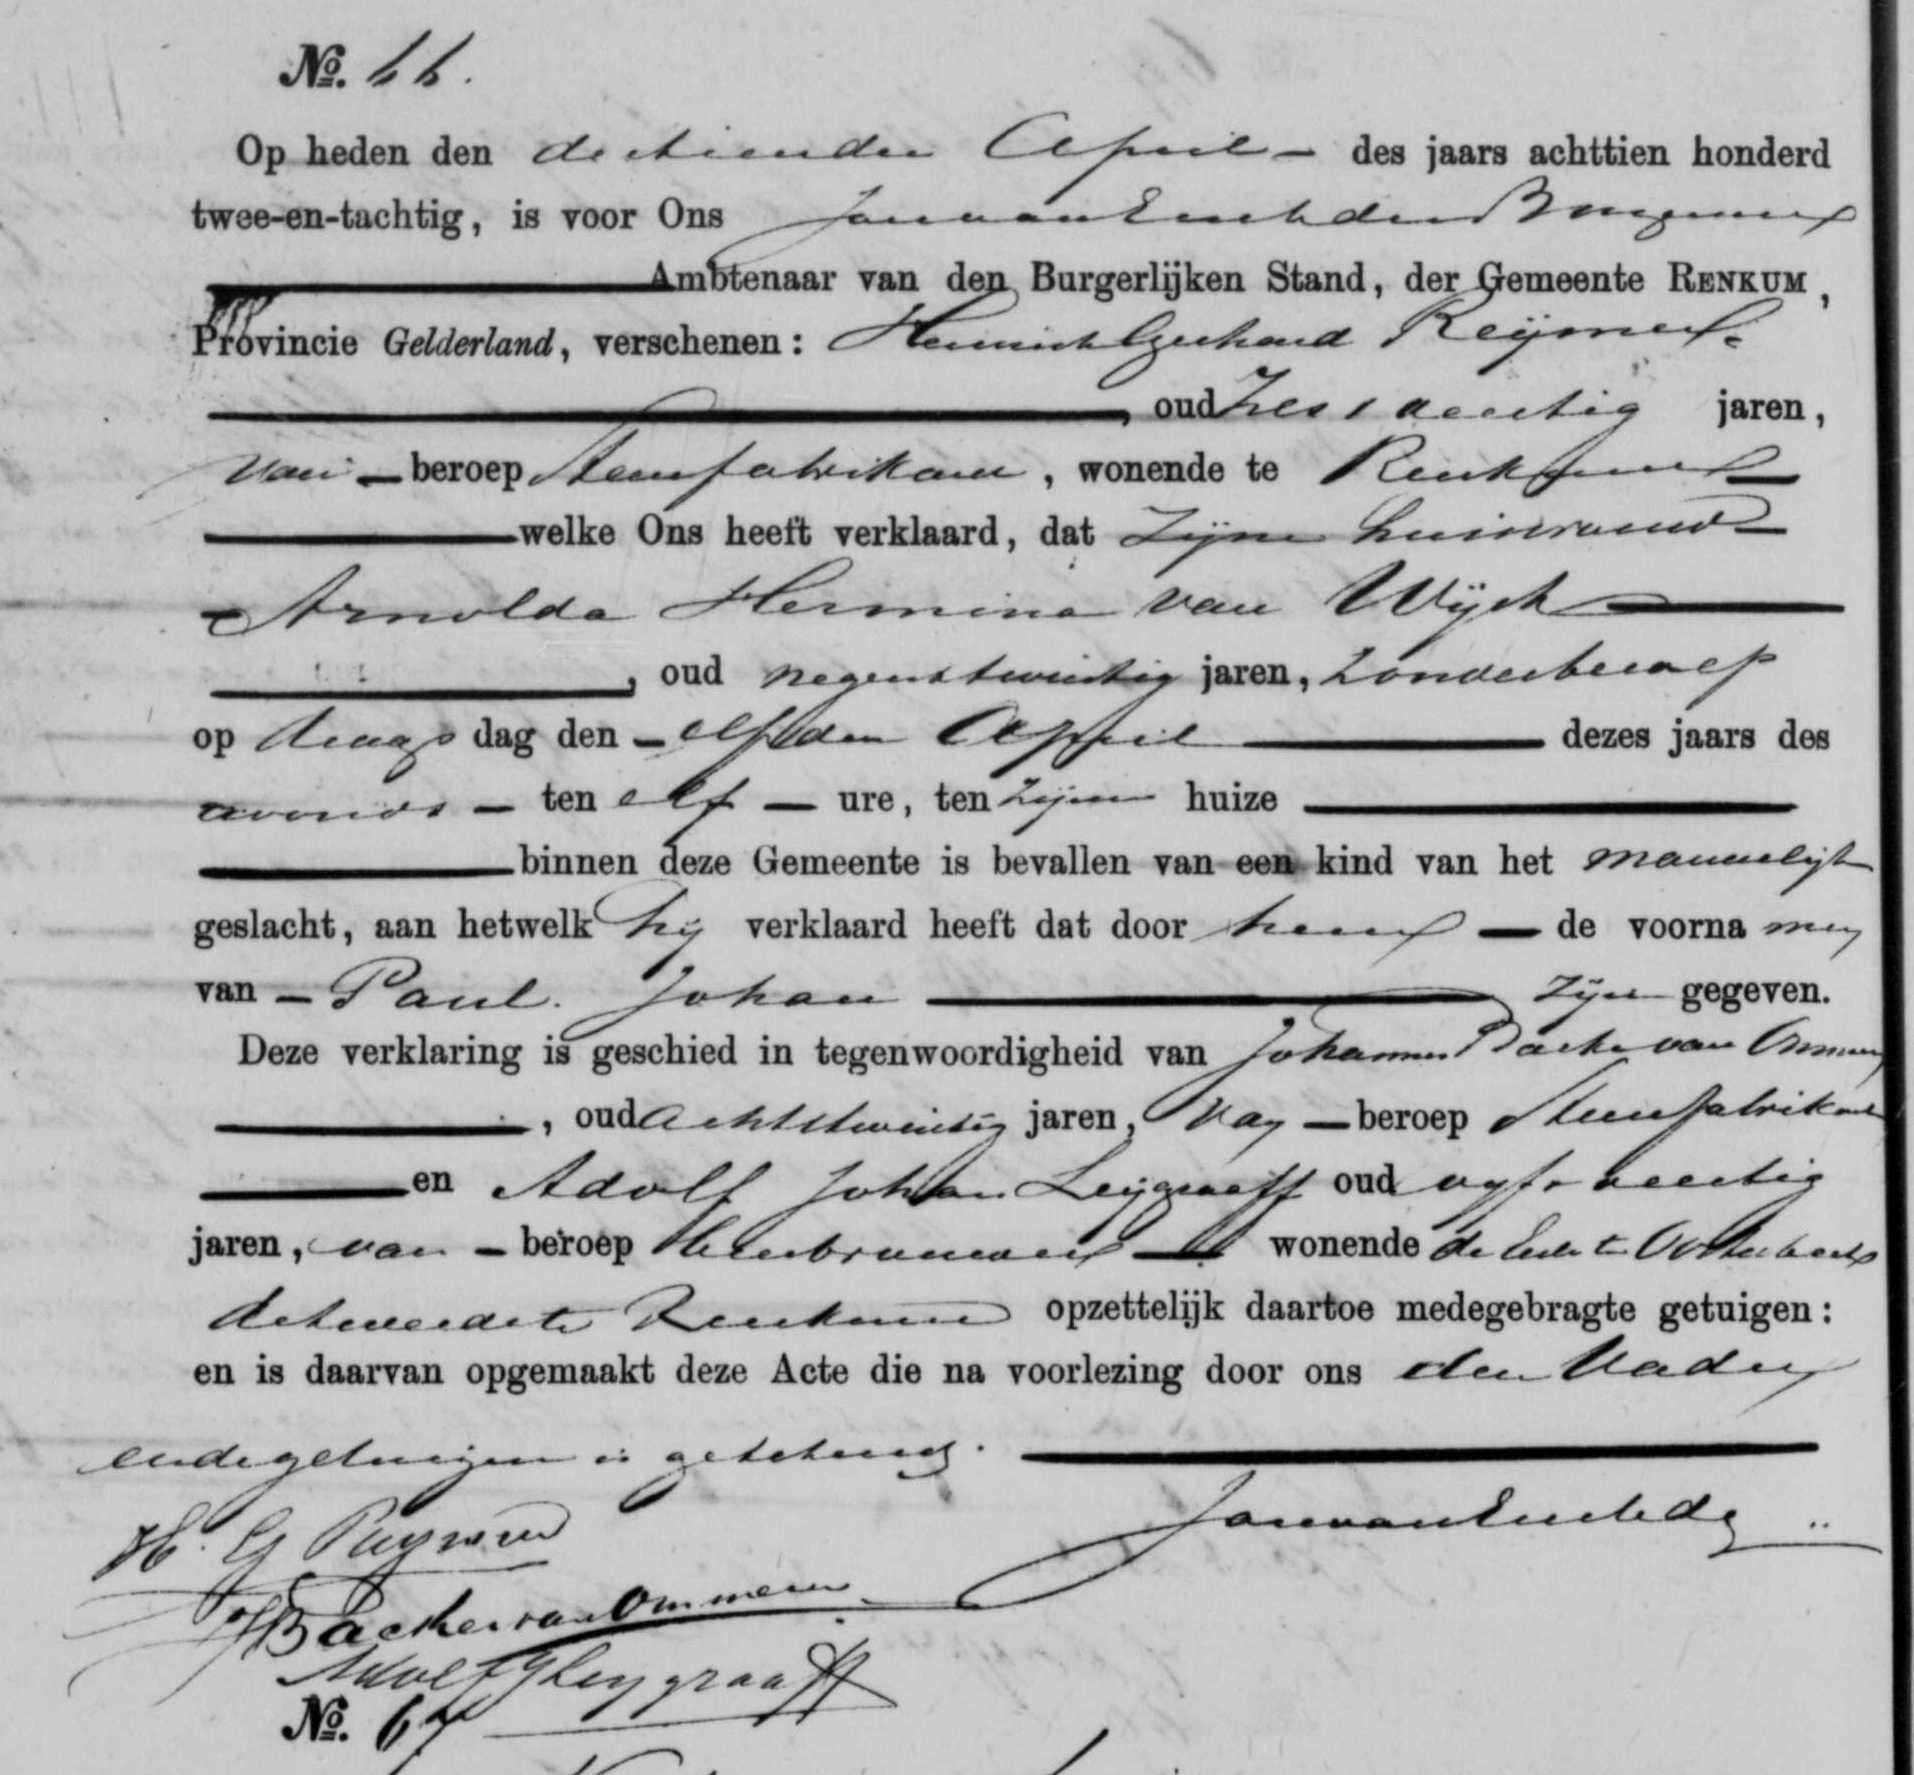 No. 66.
Op heden den dertienden April des jaars achttien honderd
twee-en-tachtig, is voor Ons Jan van Embden Burgemeester
Ambtenaar van den Burgerlijken Stand, der Gemeente RENKUM,
Provincie Gelderland, verschenen: Hermich Gerhard Reijmer
, oud zes veertig jaren,
van beroep Steenfabrikant, wonende te Renkum
welke Ons heeft verklaard, dat zijne huisvrouw
Arnolda Hermina van Wijck
, oud negentwintig jaren, zonder beroep
op dings dag den elfden April dezes jaars des
avonds ten elf ure, ten zijnen huize
binnen deze Gemeente is bevallen van een kind van het mannelijk
geslacht, aan hetwelk hij verklaard heeft dat door hem de voorna men
van Paul Johan zijn gegeven.
Deze verklaring is geschied in tegenwoordigheid van Johannes Backer van Ommeren
, oud achttwintig jaren, van beroep Steenfabrikant
en Adolf Johan Leijgraaff oud vijf veertig
jaren, van beroep bierbrouwer wonende de Eerste te Oosterbeek
de tweede te Renkum opzettelijk daartoe medegebragte getuigen:
en is daarvan opgemaakt deze Acte die na voorlezing door ons den Vader
en de getuigen is geteekend.
H. G Reymer
Jan van Embden
J Backer van Ommeren
Adolf J Leygraaff
No. 67